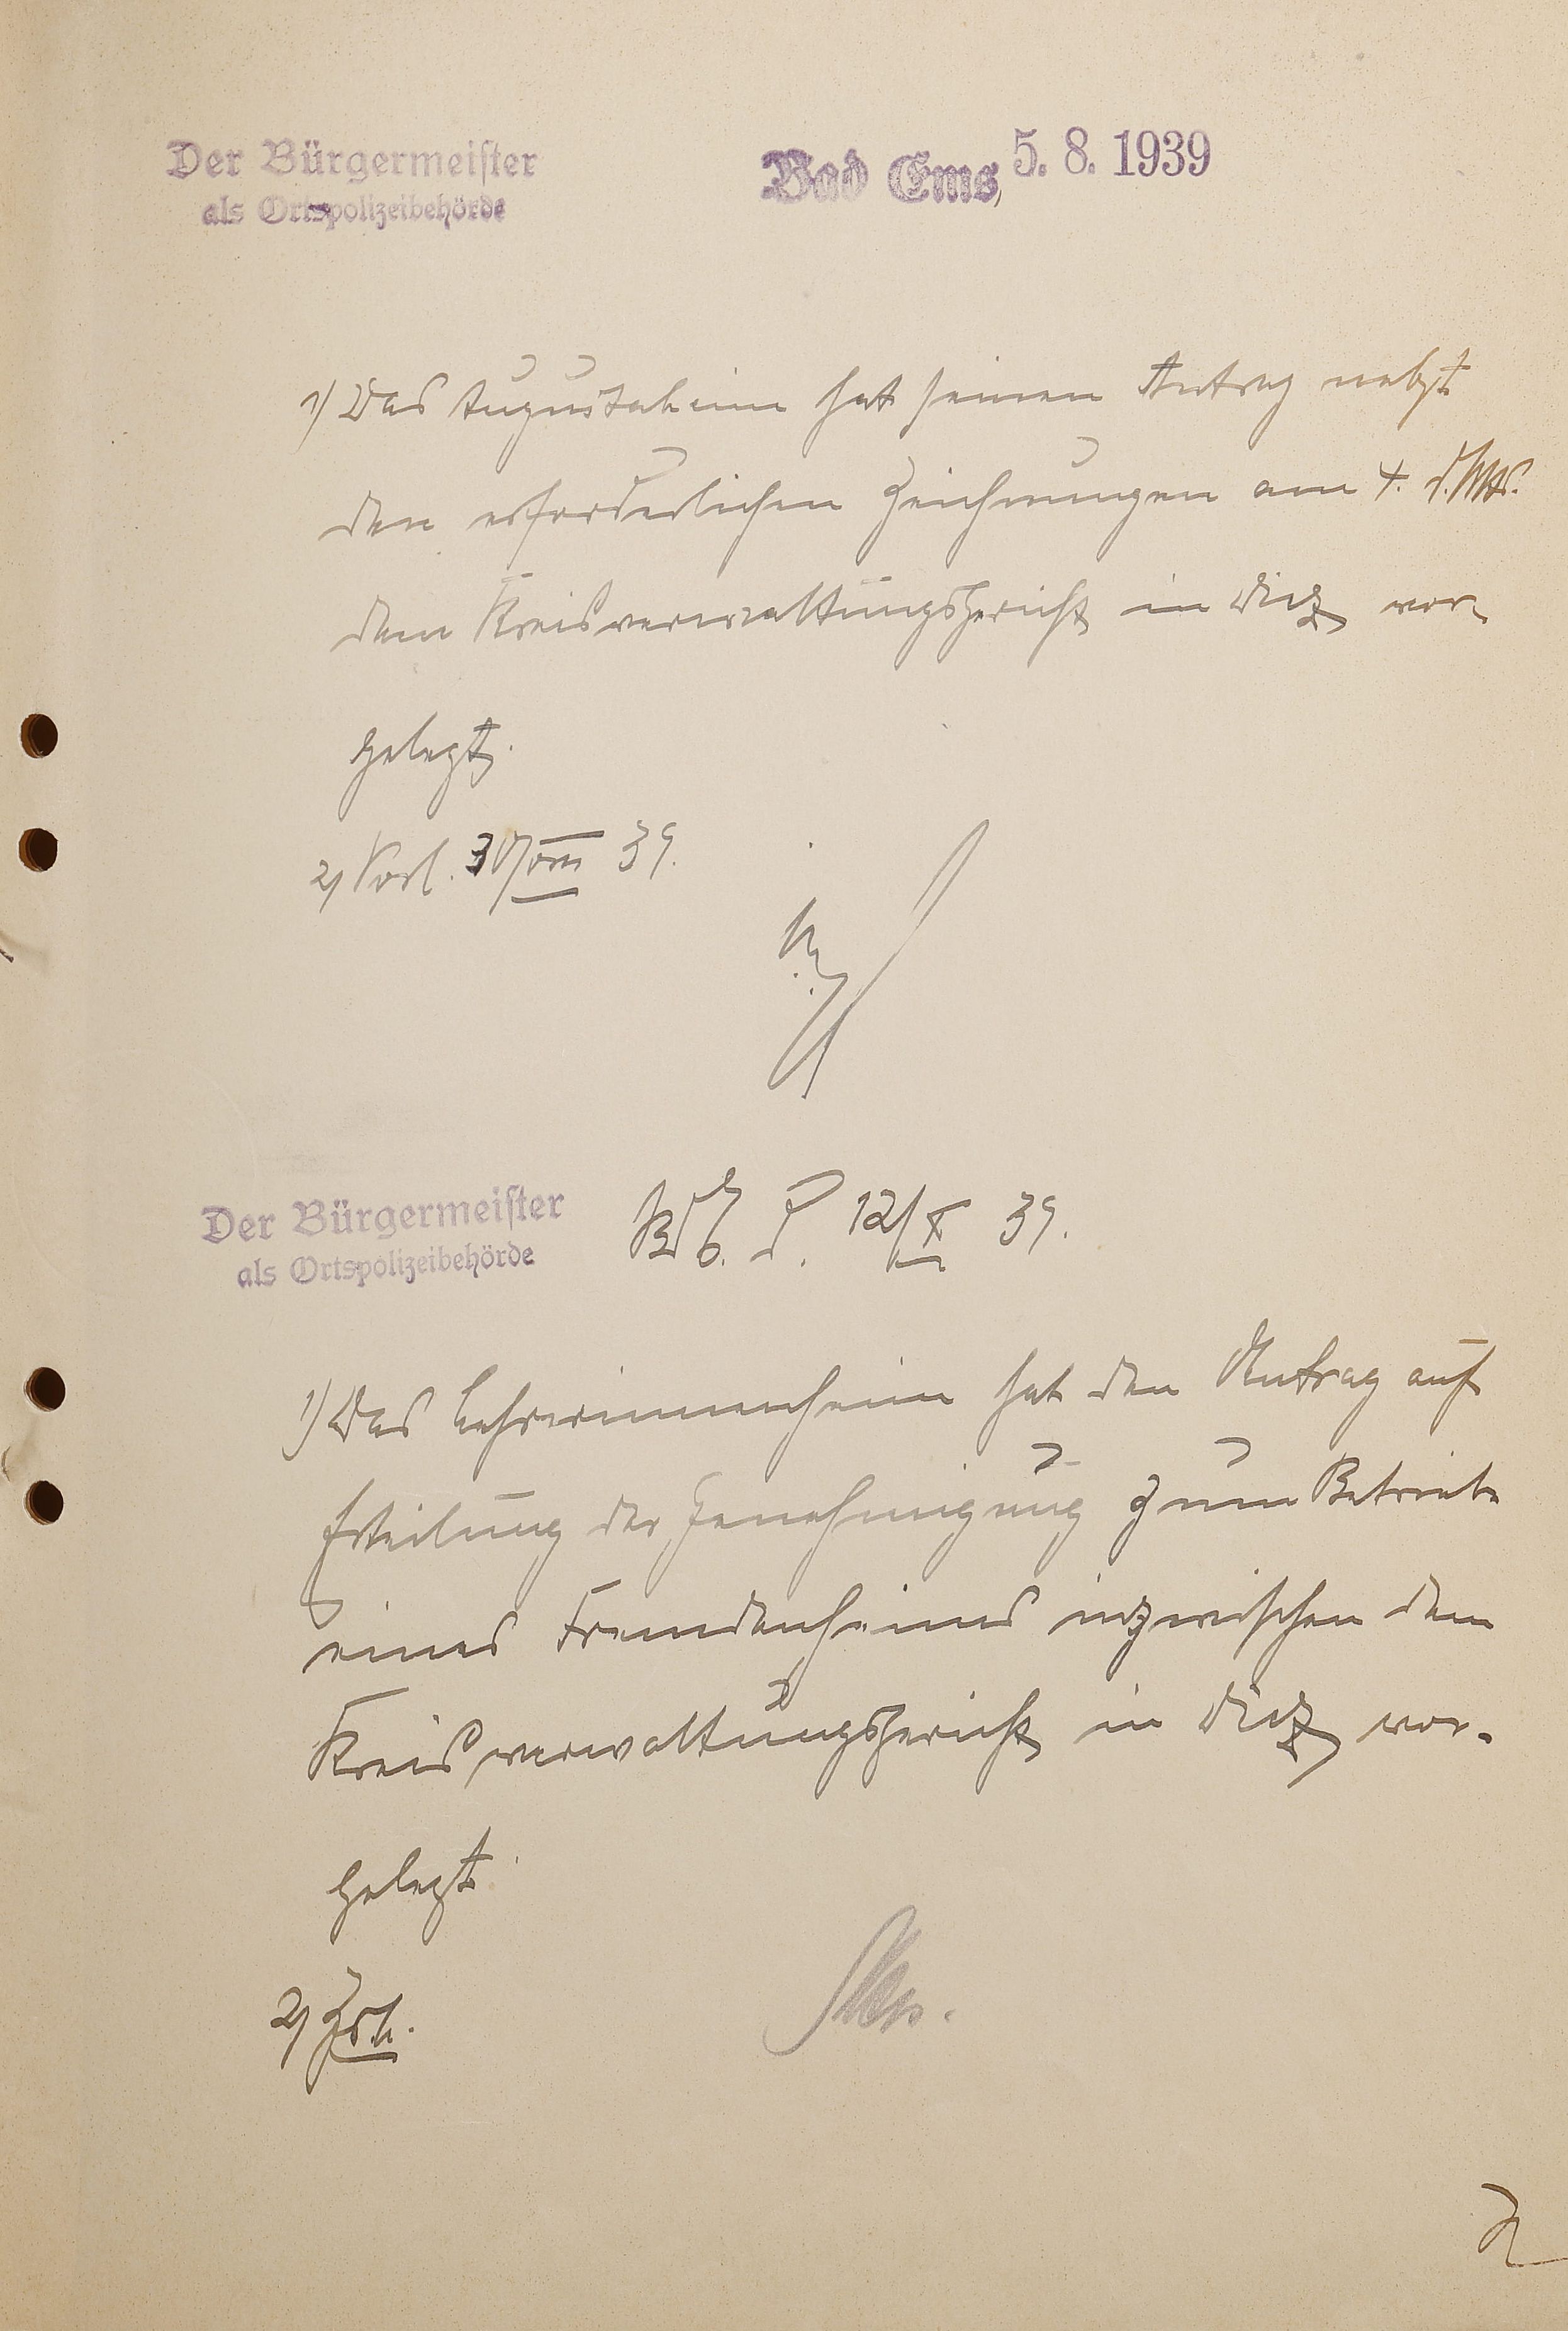 Der Bürgermeister
als Ortspolizeibehörde
Bad Ems, 5. 8. 1939
1) Das Augustaheim hat seinen Antrag nebst
den erforderlichen Zeichnungen am 4. d. Mts.
dem Kreisverwaltungsgericht in Diez vor-
gelegt.
2) Vorl. 30/VIII 39.
Der Bürgermeister
als Ortspolizeibehörde
12/X 39.
1) Das Lehrerinnenheim hat den Antrag auf
Erteilung der Genehmigung zum Betriebe
eines Fremdenheimes inzwischen dem
Kreisverwaltungsgericht in Diez vor-
gelegt.
2)